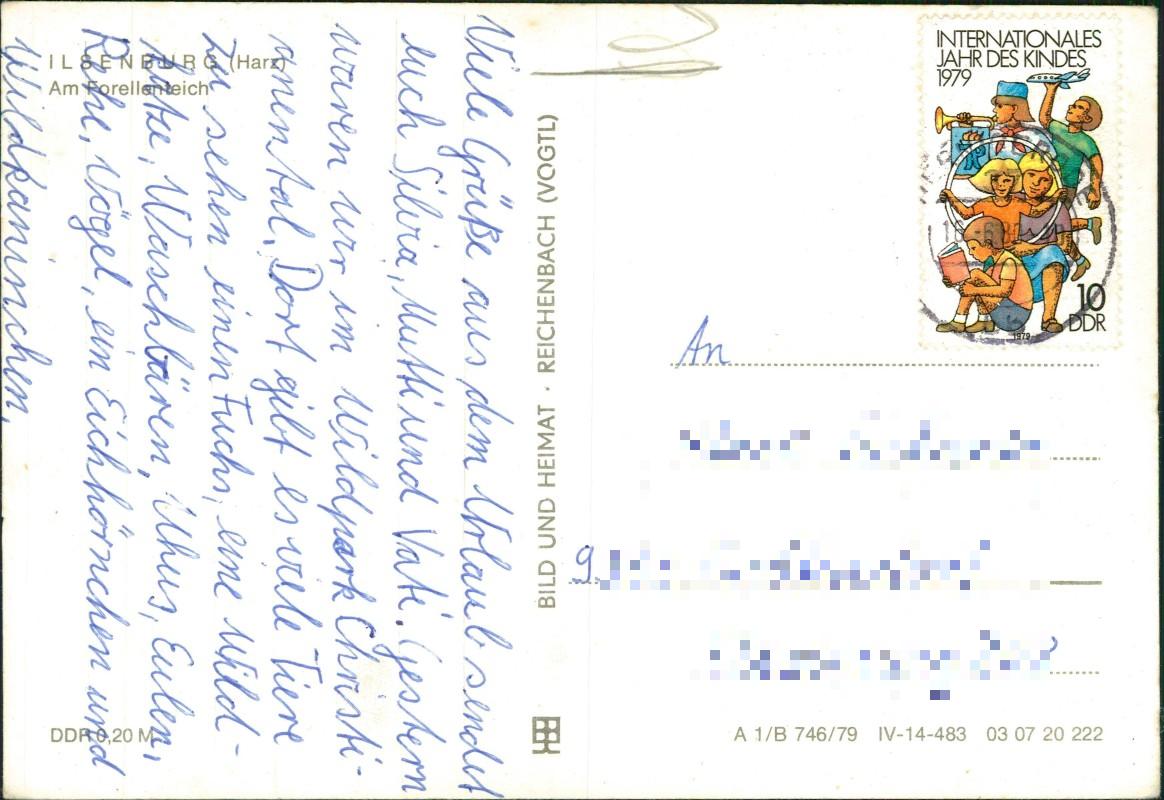 ILSENBURG (Harz)
Am Forellenteich
Viele Grüße aus dem Urlaub sendet
euch Silvia, Mutti und Vati. Gestern
waren wir im Wildpark Christi-
anental. Dort gibt es viele Tiere
zu sehen einen Fuchs, eine Wild-
katze, Waschbären, Uhus, Eulen,
Rehe, Vögel, ein Eichhörnchen und
Wildkaninchen.
DDR 0,20 M
BILD UND HEIMAT · REICHENBACH (VOGTL)
INTERNATIONALES
JAHR DES KINDES
1979
10
DDR
1979
An
9
A 1/B 746/79 IV-14-483 03 07 20 222